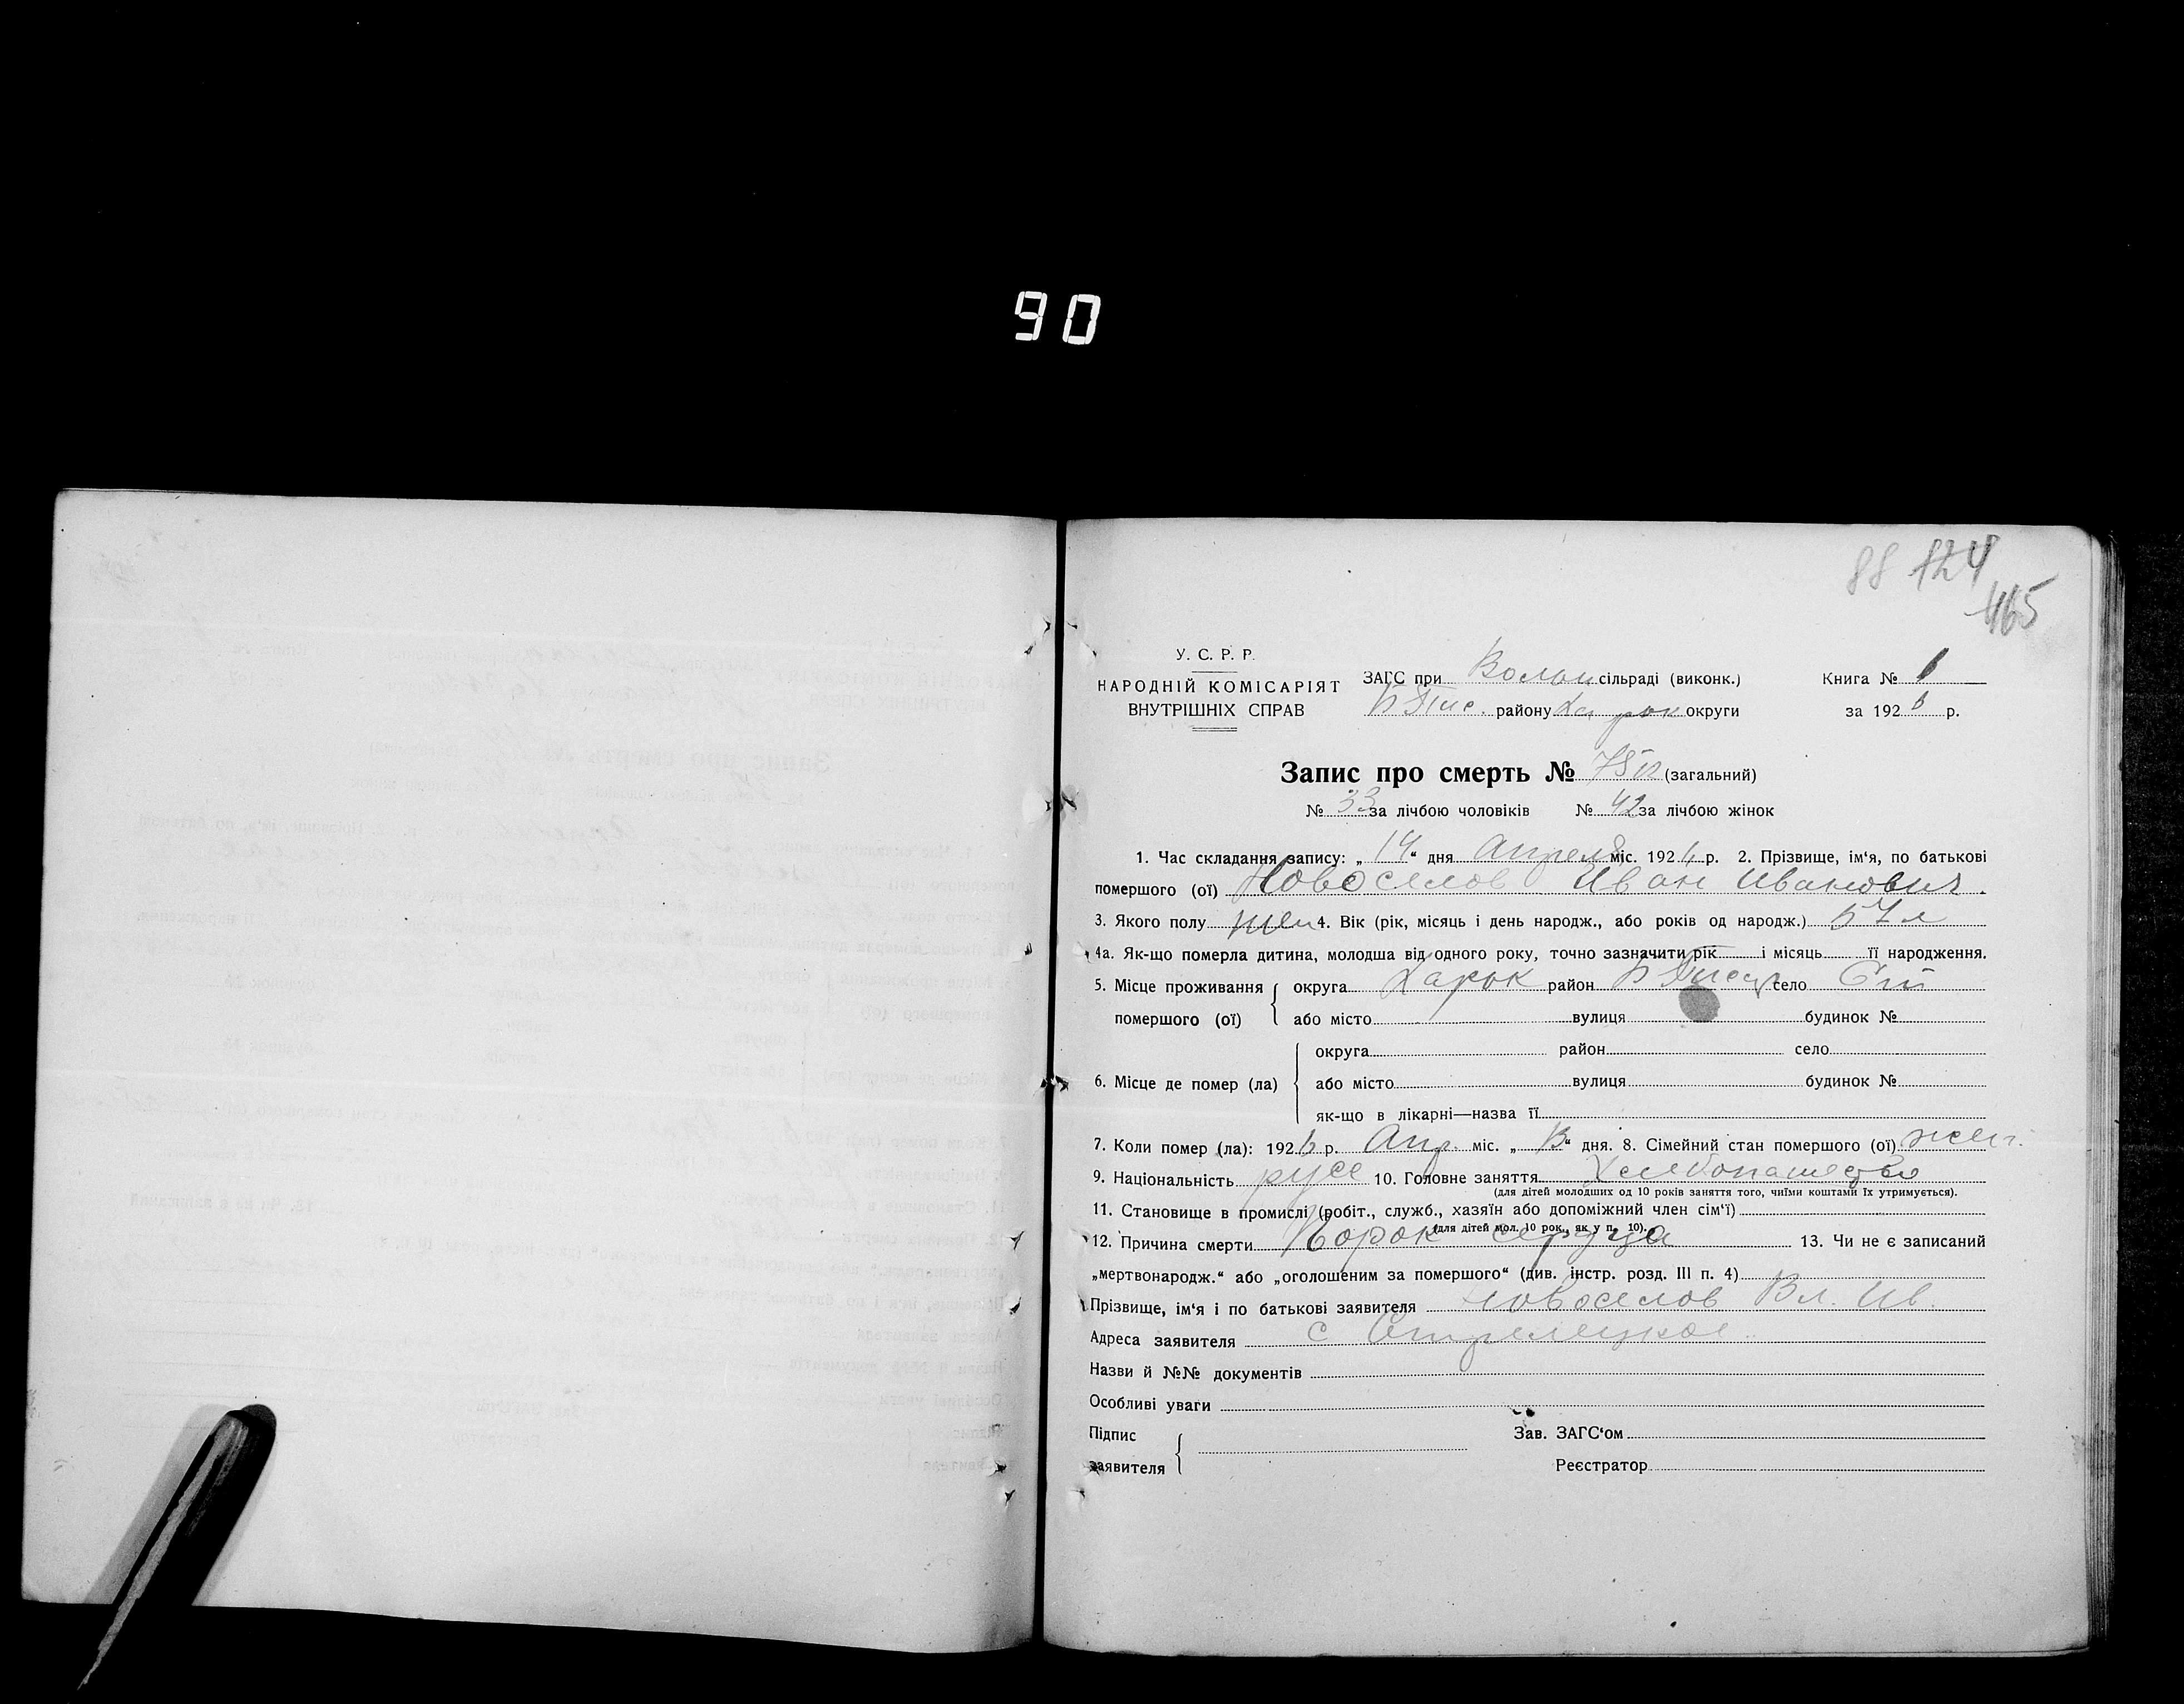 90
88 124
465
У. С. Р. Р.
НАРОДНІЙ КОМІСАРІЯТ
ВНУТРІШНІХ СПРАВ
ЗАГС при Волох сільраді (виконк.) Книга №
району округи за 1926 р.
Запис про смерть № 75 (загальний)
№ 33 за лічбою чоловіків № 42 за лічбою жінок
1. Час складання запису: „14“ дня Апреля міс. 1926 р. 2. Прізвище, ім‘я, по батькові
помершого (ої) Новоселов Иван Иванович.
3. Якого полу 4. Вік (рік, місяць і день народж., або років од народж.) 57 л
4а. Як-що померла дитина, молодша від одного року, точно зазначити рік і місяць її народження.
5. Місце проживання округа Харьк район село
помершого (ої) або місто вулиця будинок №
округа район село
6. Місце де помер (ла) або місто вулиця будинок №
як-що в лікарні—назва її
7. Коли помер (ла): 1926 р. Апр. міс. „ “ дня. 8. Сімейний стан помершого (ої) жен.
9. Національність русс 10. Головне заняття Хлебопашество
(для дітей молодших од 10 років заняття того, чиїми коштами їх утримується).
11. Становище в промислі (робіт., служб., хазяїн або допоміжний член сім‘ї)
(для дітей мол. 10 рок., як у п. 10).
12. Причина смерти Порок сердца 13. Чи не є записаний
„мертвонародж.“ або „оголошеним за помершого“ (див. інстр. розд. III п. 4)
Прізвище, ім‘я і по батькові заявителя Новоселов Вл. Ив.
Адреса заявителя с Стрелецкое
Назви й №№ документів
Особливі уваги
Підпис Зав. ЗАГС‘ом
заявителя Реєстратор